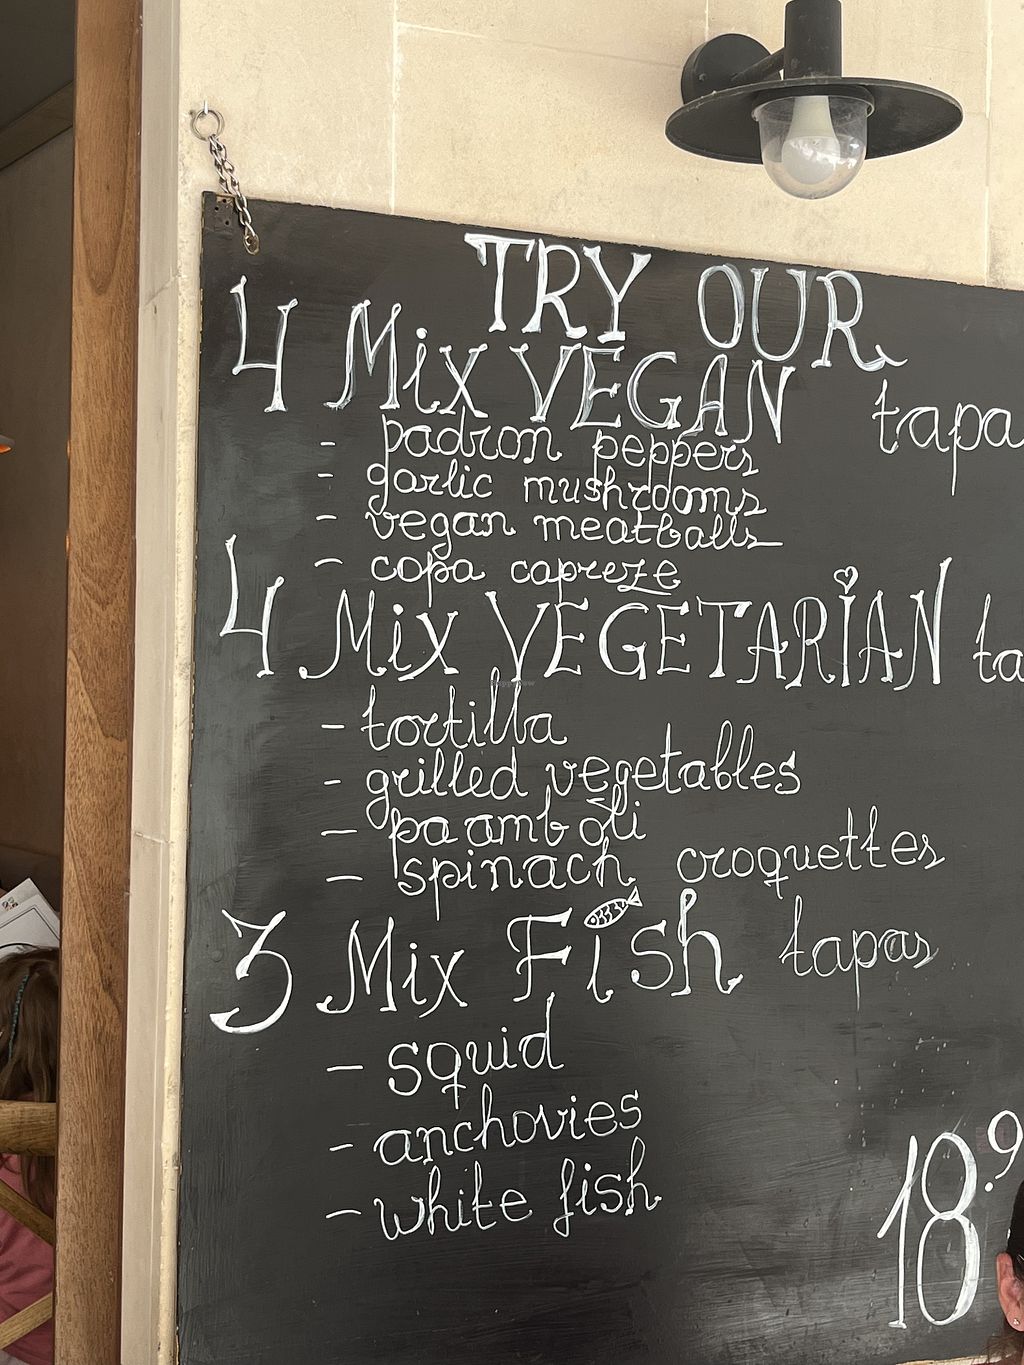 TRY OUR
4 Mix VEGAN tapa
- padron peppers
- garlic mushrooms
- vegan meatballs
- copa capreze
4 Mix VEGETARIAN ta
- tortilla
- grilled vegetables
- pa amb oli
- spinach croquettes
3 Mix Fish tapas
- squid
- anchovies
- white fish
18.9